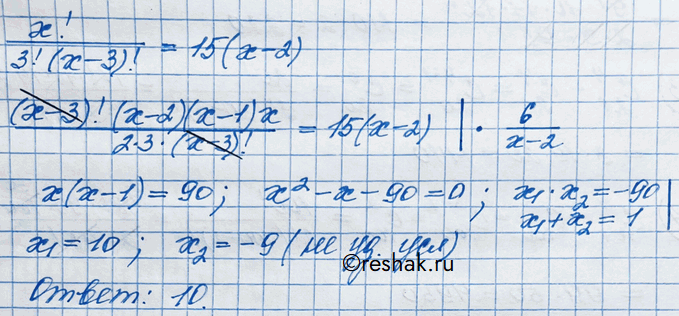 x! / 3!(x-3)! = 15(x-2)
(x-3)!(x-2)(x-1)x / 2·3·(x-3)! = 15(x-2) | · 6 / x-2
x(x-1) = 90; x² - x - 90 = 0; x₁·x₂ = -90 |
x₁+x₂ = 1
x₁ = 10; x₂ = -9 (не уд. усл)
©reshak.ru
Ответ: 10.